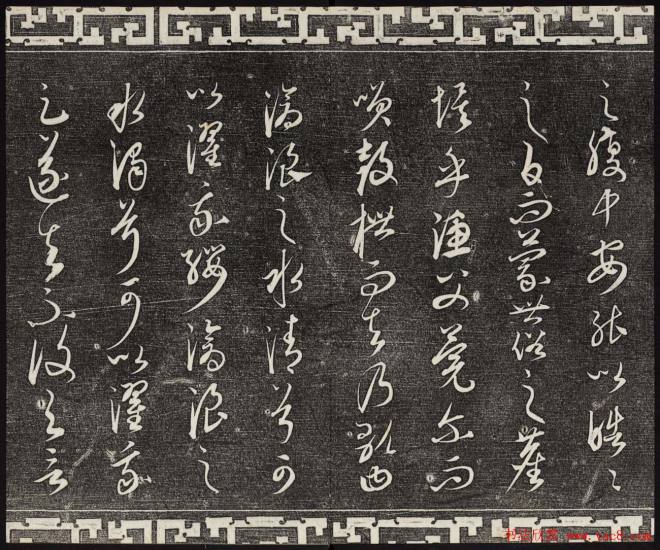 之腹中安能以皓々
之白而蒙世俗之塵
埃乎漁父莞尔而
笑鼓枻而去乃歌曲
滄浪之水清兮可
以濯我纓滄浪之
水濁兮可以濯我
足遂去不復与言
书法欣赏 www.yac8.com